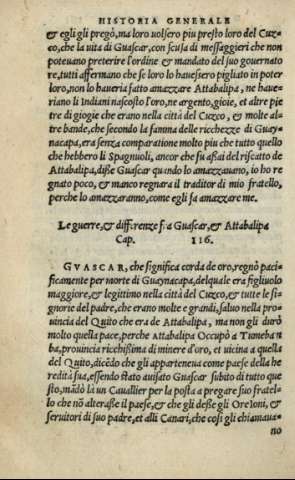 HISTORIA GENERALE
& egli gli pregò, ma loro volsero piu presto loro del Cuz-
co, che la uita di Guascar, con scusa di messaggieri che non
poteuano preterire l'ordine & mandato del suo gouernato
re, tutti affermano che se loro lo hauessero pigliato in poter
loro, non lo haueria fatto amazzare Attabalipa, ne haue-
riano li Indiani nascosto l'oro, ne argento, gioie, et altre pie
tre di giogie che erano nella città del Cuzco, & molte al-
tre bande, che secondo la famma delle ricchezze di Guay-
nacapa, era senza comparatione molto piu che tutto quello
che hebbero li Spagnuoli, ancor che fu assai del riscatto de
Attabalipa, disse Guascar quando lo amazzauano, io ho re
gnato poco, & manco regnara il traditor di mio fratello,
perche lo amazzaranno, come egli fa amazzare me.
Le guerre, & differenze fra Guascar, & Attabalipa
Cap. 116.
GVASCAR, che significa corda de oro, regnò paci-
ficamente per morte di Guaynacapa, del quale era figliuolo
maggiore, & legittimo nella città del Cuzco, & tutte le si-
gnorie del padre, che erano molte e grandi, saluo nella pro-
uincia del Quito che era de Attabalipa, ma non gli durò
molto quella pace, perche Attabalipa Occupò a Tumeba n
ba, prouincia ricchissima di minere d'oro, et uicina a quella
del Quito, dicẽdo che gli apparteneua come paese della he
redità sua, essendo stato auisato Guascar subito di tutto que
sto, mãdò là un Cauallier per la posta a pregare suo fratel-
lo che nõ alterasse il paese, & che gli desse gli Oreloni, &
seruitori di suo padre, et alli Canari, che cosi gli chiamaua-
no